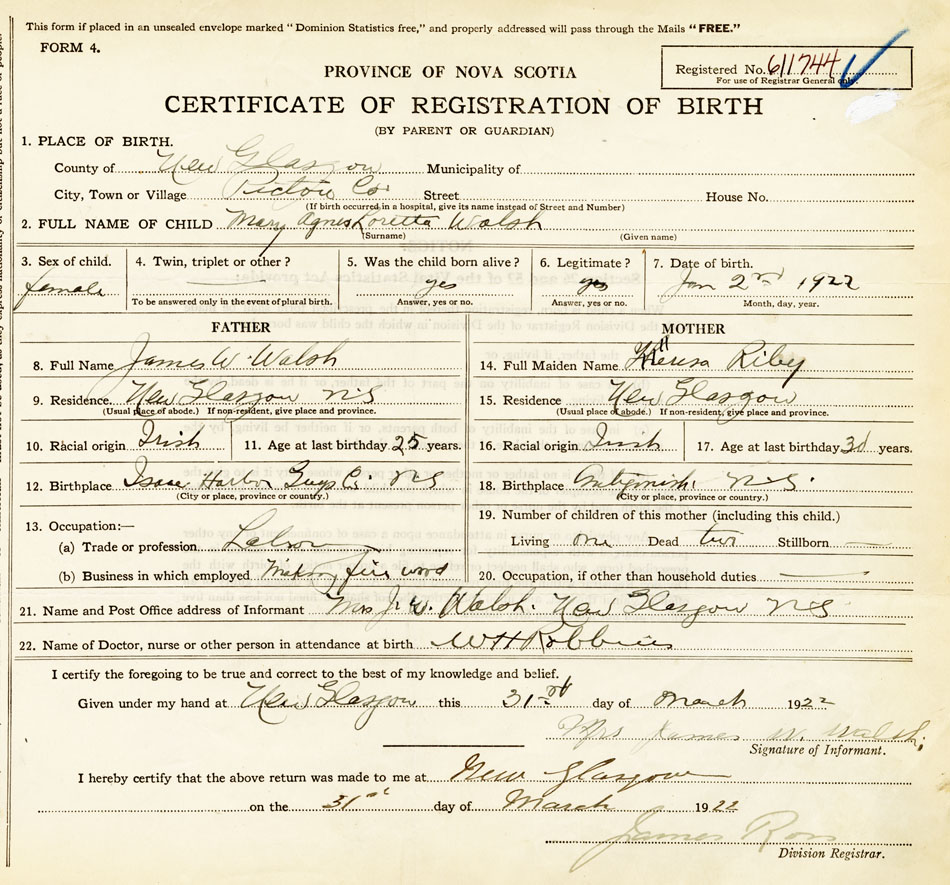 This form if placed in an unsealed envelope marked "Dominion Statistics free," and properly addressed will pass through the Mails "FREE."
FORM 4.
Registered No. 611744
For use of Registrar General only.
PROVINCE OF NOVA SCOTIA
CERTIFICATE OF REGISTRATION OF BIRTH
(BY PARENT OR GUARDIAN)
1. PLACE OF BIRTH.
County of New Glasgow Municipality of
City, Town or Village Pictou Co. Street House No.
(If birth occurred in a hospital, give its name instead of Street and Number)
2. FULL NAME OF CHILD Mary Agnes Loretta Walsh
(Surname) (Given name)
3. Sex of child. 4. Twin, triplet or other? 5. Was the child born alive? 6. Legitimate? 7. Date of birth.
female yes yes Jan 2nd 1922
To be answered only in the event of plural birth. Answer, yes or no. Answer, yes or no. Month, day, year.
FATHER
8. Full Name James W. Walsh
9. Residence. New Glasgow NS
(Usual place of abode.) If non-resident, give place and province.
10. Racial origin Irish 11. Age at last birthday 25 years.
12. Birthplace Isaac Harbor Guys Co. NS
(City or place, province or country.)
13. Occupation:—
(a) Trade or profession Labor
(b) Business in which employed Making fire wood
MOTHER
14. Full Maiden Name Theresa Riley
15. Residence New Glasgow
(Usual place of abode.) If non-resident, give place and province.
16. Racial origin Irish 17. Age at last birthday years.
18. Birthplace Antigonish N.S.
(City or place, province or country.)
19. Number of children of this mother (including this child.)
Living one Dead two Stillborn
20. Occupation, if other than household duties
21. Name and Post Office address of Informant Mrs J. W. Walsh. New Glasgow NS
22. Name of Doctor, nurse or other person in attendance at birth W H Robbins
I certify the foregoing to be true and correct to the best of my knowledge and belief.
Given under my hand at New Glasgow this 31st day of March 1922
Mrs James W. Walsh.
Signature of Informant.
I hereby certify that the above return was made to me at New Glasgow
on the 31st day of March 1922
James Ross
Division Registrar.